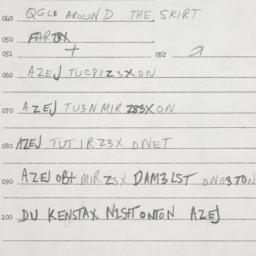 040 QGLE AROUND THE SKIRT
050
051 052
060 AZEJ TUCPIZ3XON
070 AZEJ TU3N MIR Z83XON
080 AZEJ TUT IRZ3X ONET
090 AZEJ OBT MIR Z3X DAM3LST ONG3TON
100 DU KENSTAX NISHTONTON AZEJ